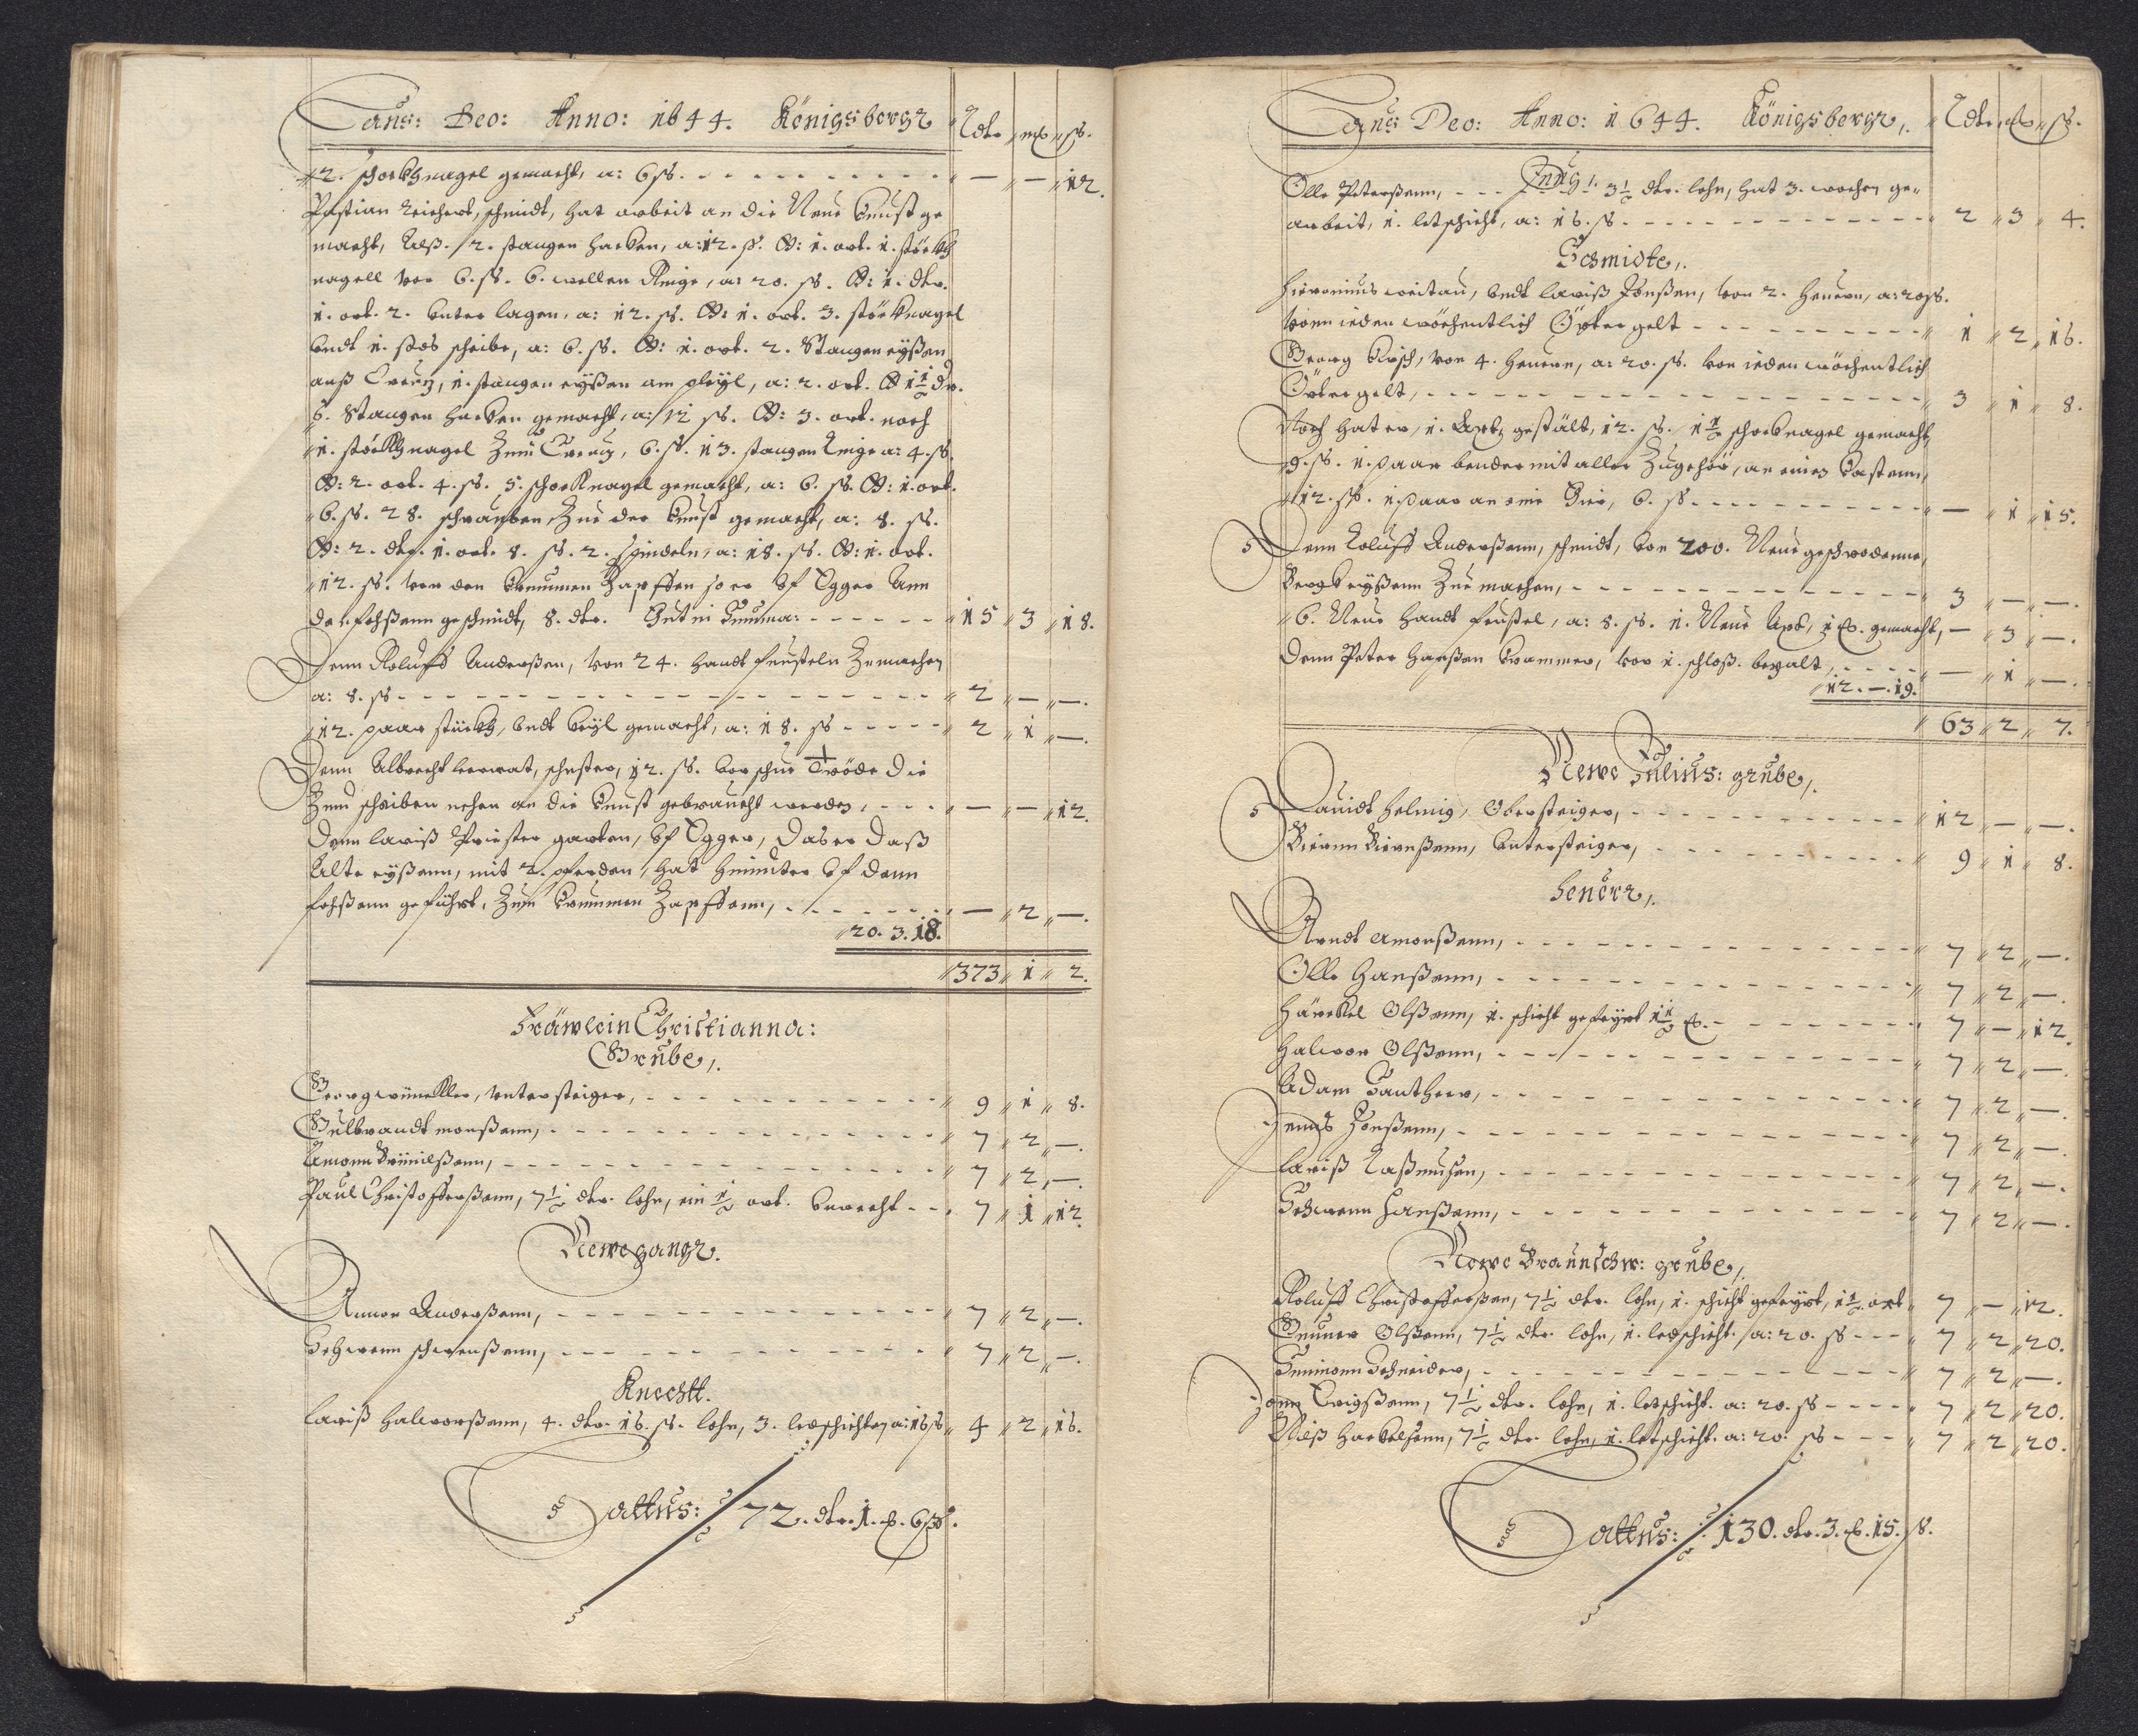 Laus: Deo: Anno: 1644. Königsbergk Rdlr ort ß.
2. schockhnagel gemacht, a: 6 ß. - - - " — " — " 12.
Pastian Reichert, schmidt, hat arbeit an die Neue Kunst ge
macht, Alß. 2. stangen hacken, a: 12. ß. 1. ort. 1. störckh
nagell vor 6. ß. 6. wellen Ringe, a: 20. ß. 1. dlr.
1. ort. 2. unter lagen, a: 12. ß. 1. ort. 3. störcknagel
undt 1. stos scheibe, a: 6. ß. 1. ort. 2. Stangen eyßen
auß Creutz, 1. stangen eyßen am pleyl, a: 2. ort. 1 1/2 dr.
6. Stangen hacken gemacht, a: 12 ß. 3. ort. noch
1. störckhnagel Zum Creutz, 6. ß. 13. stangen Ringe a: 4. ß.
2. ort. 4. ß. 5. schocknagel gemacht, a: 6. ß. 1. ort.
6. ß. 28. schrauben Zue der Kunst gemacht, a: 8. ß.
2. dlr. 1. ort. 8. ß. 2. Spindeln, a: 18. ß. 1. ort.
12. ß. von den Krummen Zapffen so er Uf Egger Unn
da foßenn geschmidt, 8. dlr. Thut in Summa: - - - " 15 " 3 " 18.
Denn Roluff Anderßen, von 24. handt feusteln Zumachen
a: 8. ß - - - " 2 " — " —.
12. paar stückh, undt Keyl gemacht, a: 18. ß - - - " 2 " 1 " —.
Denn Albrecht schuster, 12. ß. vor schue die
Zum scheiben nehen an die Kunst gebraucht werden, - - - " — " — " 12.
Denn lariß Priester garten, Uf Egger, das er daß
Alte eyßenn, mit 2. pferden, hat hinunter Uf dann
foßenn geführt, Zum Krummen Zapffenn, - - - " — " 2 " —.
" 20. 3. 18.
" 373 " 1 " 2.
Fräwlein Christianna:
Grube,.
Georg winckller, Untersteiger, - - - " 9 " 1 " 8.
Gulbrandt monßenn, - - - " 7 " 2 " —.
Amonn Brünilßenn, - - - " 7 " 2 " —.
Paul Christofferßenn, 7 1/2 dlr. lohn, ein 1/2 ort. Unrecht - - " 7 " 1 " 12.
Newegangk.
Annon Anderßenn, - - - " 7 " 2 " —.
Schwenn schwenßenn, - - - " 7 " 2 " —.
Knechtt.
lariß halworßenn, 4. dlr. 16. ß. lohn, 3. ledschichten a: 16 ß " 4 " 2 " 16.
Lattus: 72. dlr. 1. ort. 6 ß.
Laus Deo: Anno: 1644. Königsbergk,. Rdlr ort ß.
Jungs.
Olle Peterßenn, - - - 3 1/2 dlr. lohn, hat 3. wochen ge-
arbeit, 1. letschicht, a: 16. ß. - - - " 2 " 3 " 4.
Schmidte,.
Hieronimus weitau, Undt lariß Jonßen, von 2. heuern, a: 20 ß.
vonn ieden wöchentlich Örter gelt - - - " 1 " 2 " 16.
Georg Kusch, von 4. heuern, a: 20. ß. von ieden wöchentlich
Örter gelt, - - - " 3 " 1 " 8.
Noch hat er, 1. Axt, gestält, 12. ß. 1 1/2 schocknagel gemacht,
9. ß. 1. paar bender mit aller Zugehör, an einen Kastenn,
12. ß. 1 paar an eine Thür, 6. ß - - - " — " 1 " 15.
Denn Roluff Anderßenn, schmidt, von 200. Neue geschrodenne,
Bergk eyßenn Zue machen, - - - " 3 " — " —.
6. Neue handt feustel, a: 8. ß. 1. Neue Axt, 1 ort. gemacht, " — " 3 " —.
Denn Peter hanßen Krammer, vor 1. schloß. bezalt, - - - " — " 1 " —.
" 12. —. 19.
" 63 " 2 " 7.
Newe Julius: grube,.
Dauidt helmig, Obersteiger, - - - " 12 " — " —.
Biornn Biornßenn, Untersteiger, - - - " 9 " 1 " 8.
Heuerr,.
Arndt Amonßenn, - - - " 7 " 2 " —.
Olle Hanßenn, - - - " 7 " 2 " —.
Härckel Olßenn, 1. schicht gefeyrt 1 1/2 ort. - - - " 7 " — " 12.
Halwor Olßenn, - - - " 7 " 2 " —.
Adam Santheer, - - - " 7 " 2 " —.
Jenns Jonßenn, - - - " 7 " 2 " —.
lariß Raßmußen, - - - " 7 " 2 " —.
Schwenn Hanßenn, - - - " 7 " 2 " —.
Newe Braunschw: grube,.
Roluff Christofferßen, 7 1/2 dlr. lohn, 1. schicht gefeyrt, 1 1/2 ort " 7 " — " 12.
Gunner Olßenn, 7 1/2 dlr. lohn, 1. ledschicht. a: 20. ß - - - " 7 " 2 " 20.
Simonn Schneider, - - - " 7 " 2 " —.
Jonn Crigßenn, 7 1/2 dlr. lohn, 1. letschicht. a: 20. ß - - - " 7 " 2 " 20.
Nielß Harkelßenn, 7 1/2 dlr. lohn, 1. letschicht. a: 20. ß - - - " 7 " 2 " 20.
Lattus: 130. dlr. 3. ort. 15. ß.